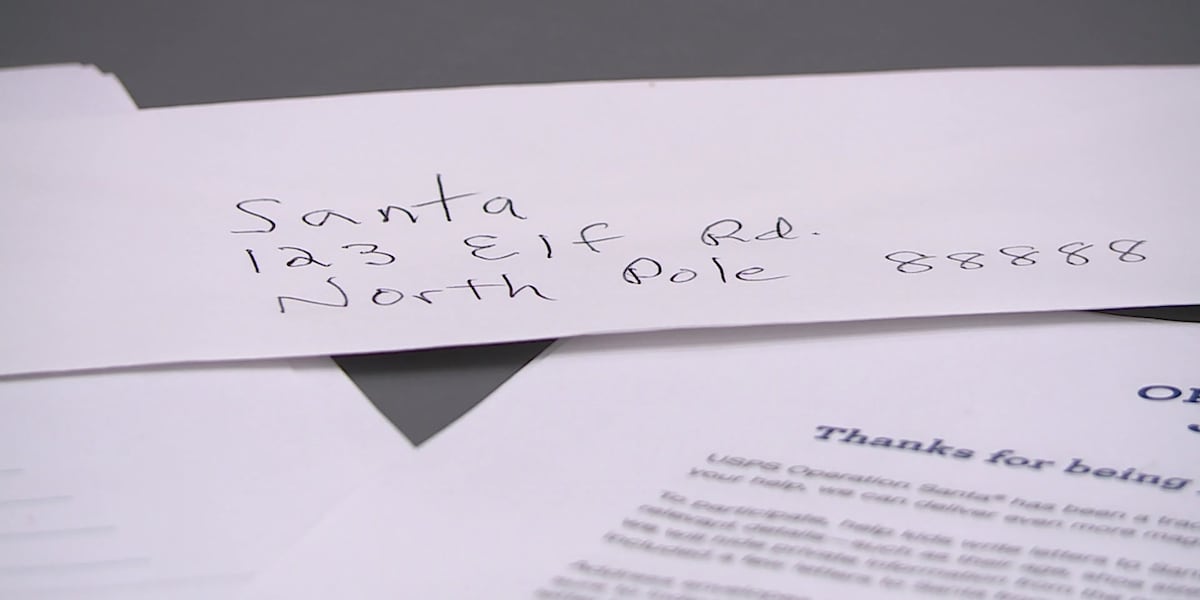 Santa
123 Elf Rd.
North Pole 88888
Thanks for being
USPS Operation Santa® has been a
your help, we can deliver even more
To participate, help kids write letters to
relevant details—such as their age, shoe
we will hide private information from the
included a few letters to Santa
Address envelopes